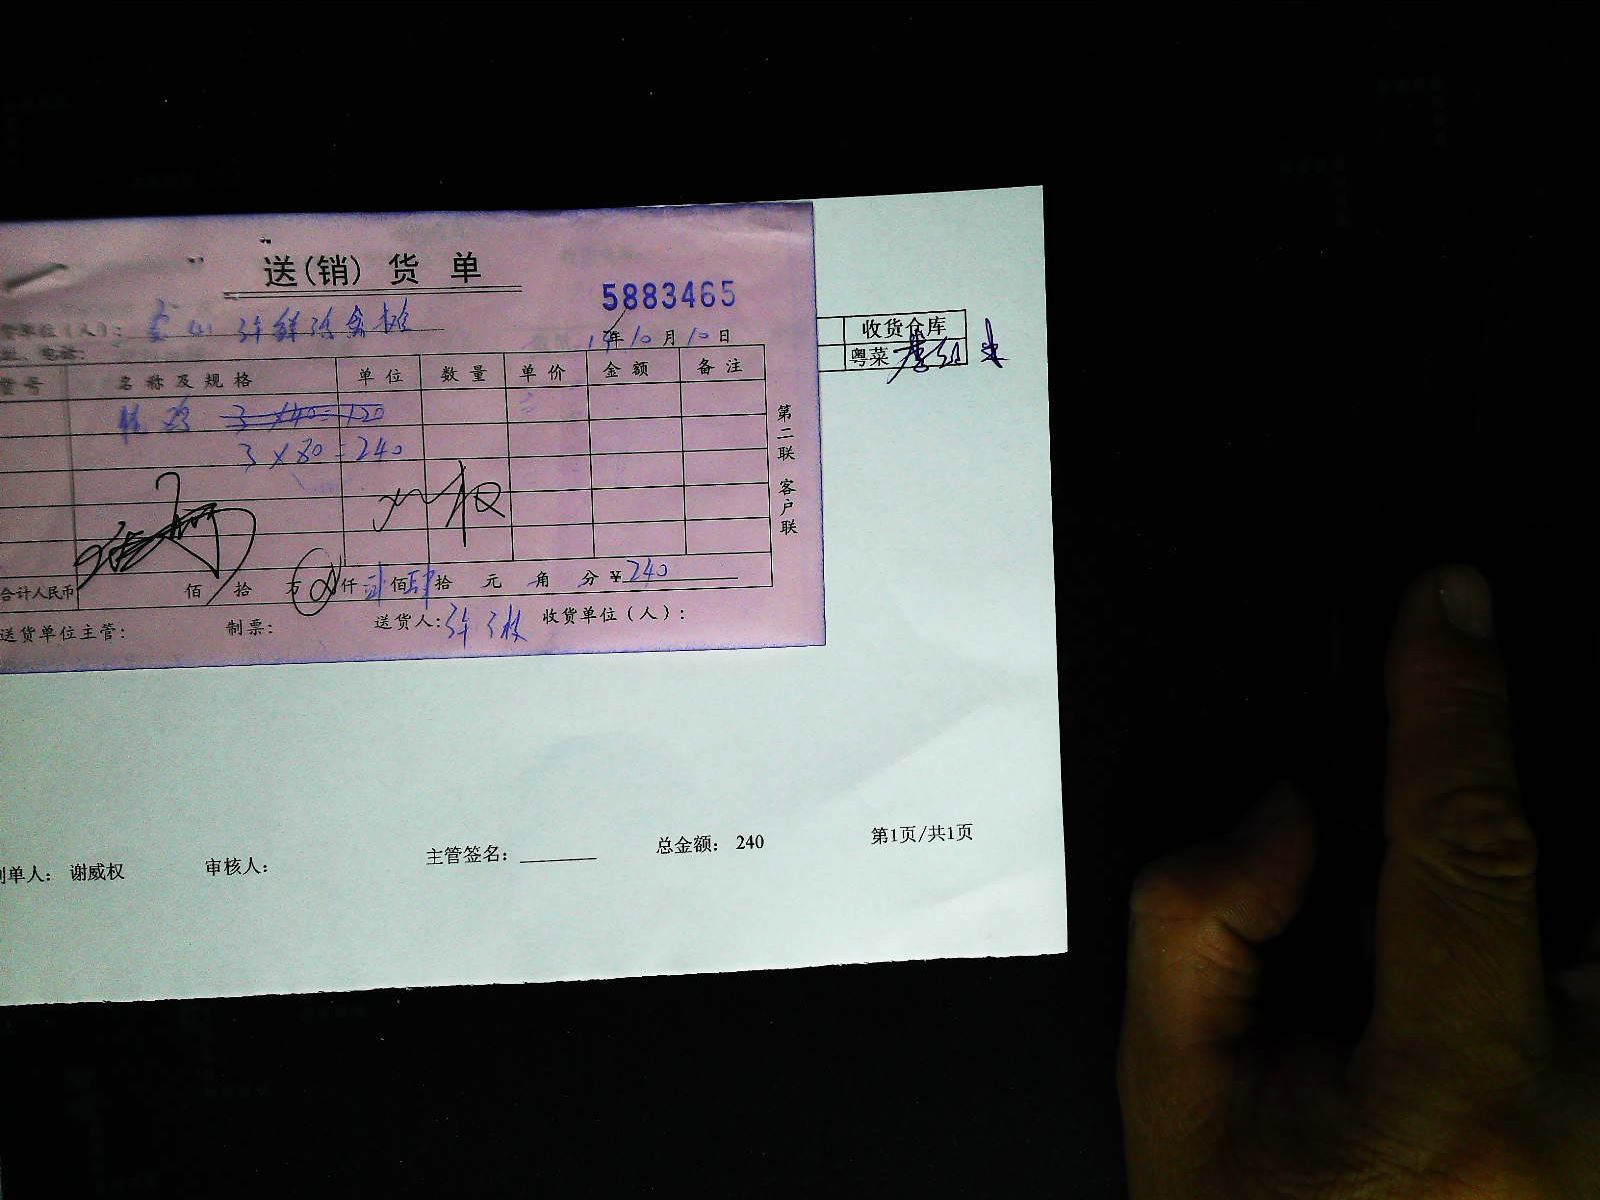 送(销) 货 单
5883465
货单位(人):
年10月10日
收货仓库
粤菜
货号 名称及规格 单位 数量 单价 金额 备注
3×40=120
3×80=240
第二联 客户联
合计人民币 佰 拾 万 仟贰佰肆拾 元 角 分 ¥240
送货单位主管: 制票: 送货人: 收货单位(人):
制单人: 谢威权 审核人: 主管签名: 总金额: 240 第1页/共1页